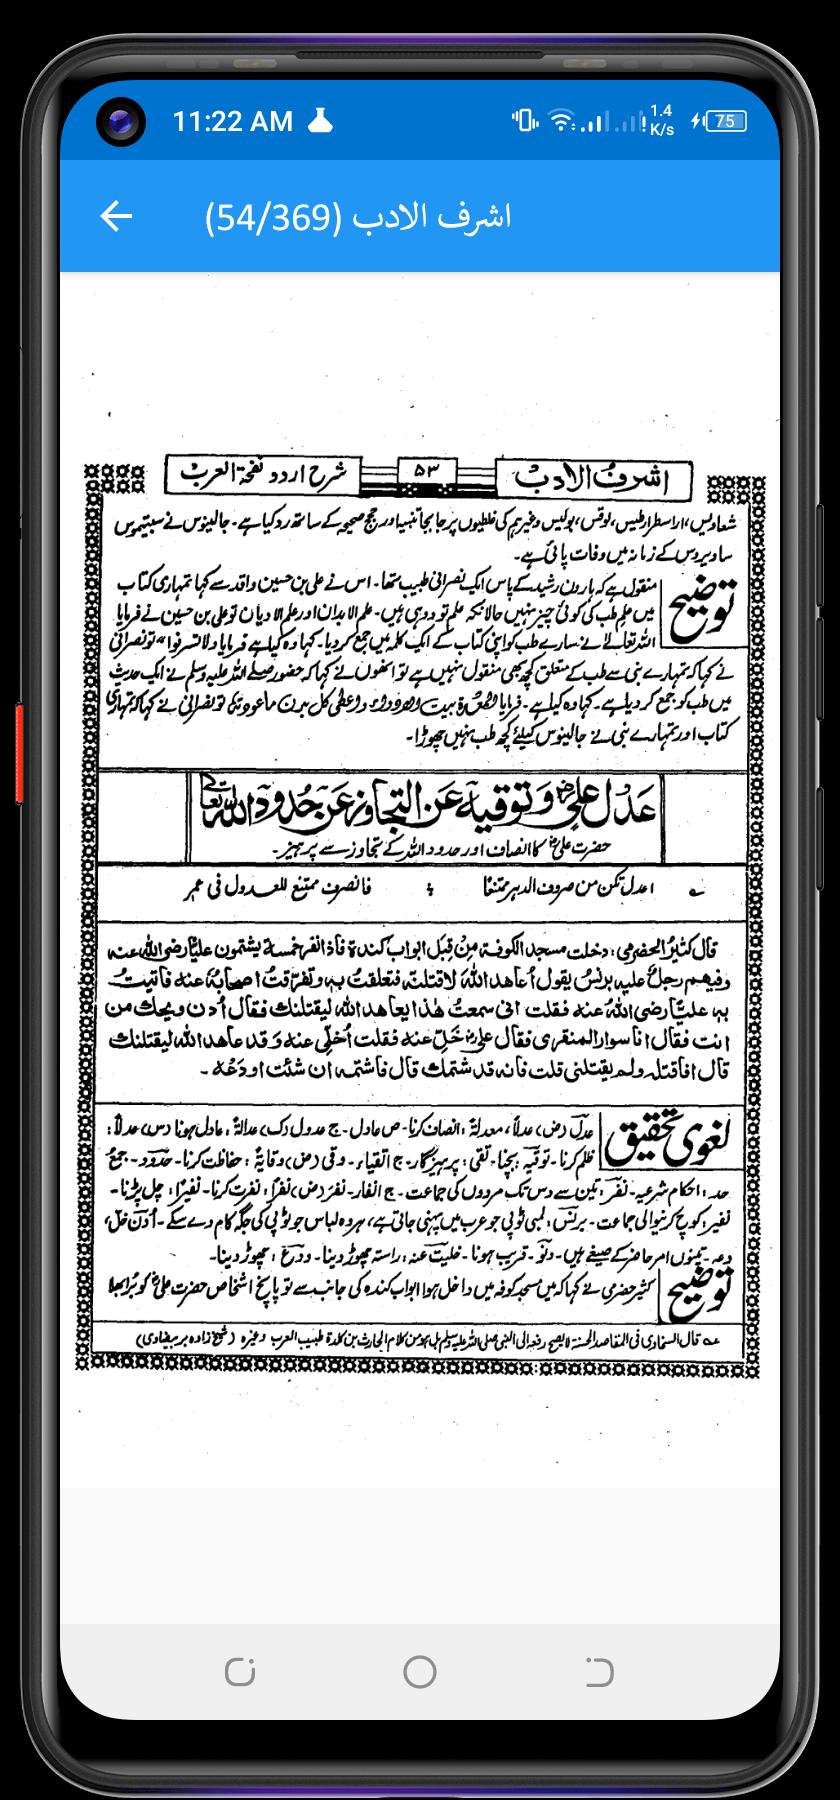 11:22 AM
1.4 K/s
75
اشرف الادب (54/369)
اشرف الادب
۵۳
شرح اردو نفحۃ العرب
شعاولیس، اراسطراطیس، لوقس، بولیس وغیرہم کی غلطیوں پر جا بجا تنبیہ اور حجج صحیحہ کے ساتھ رد کیا ہے۔ جالینوس نے سبتیموس
ساویروس کے زمانہ میں وفات پائی ہے۔
توضیح
منقول ہے کہ ہارون رشید کے پاس ایک نصرانی طبیب تھا۔ اس نے علی بن حسین واقد سے کہا تمہاری کتاب
میں علم طب کی کوئی چیز نہیں حالانکہ علم تو دو ہی ہیں۔ علم الابدان اور علم الادیان تو علی بن حسین نے فرمایا
اللہ تعالےٰ نے سارے طب کو اپنی کتاب کے ایک کلمہ میں جمع کر دیا۔ کہا وہ کیا ہے فرمایا ولا تسرفوا، تو نصرانی
نے کہا کہ تمہارے نبی سے طب کے متعلق کچھ بھی منقول نہیں ہے تو انھوں نے کہا کہ حضور صلے اللہ علیہ وسلم نے ایک حدیث
میں طب کو جمع کر دیا ہے۔ کہا وہ کیا ہے۔ فرمایا المعدۃ بیت الادواء واعطی کل بدن ماعودتہ تو نصرانی نے کہا کہ تمہاری
کتاب اور تمہارے نبی نے جالینوس کیلئے کچھ طب نہیں چھوڑا۔
عَدْل علیؓ وَتوقیہ عَن التجاوز عَن حُدُود اللہ تعالیٰ
حضرت علیؓ کا انصاف اور حدود اللہ کے تجاوز سے پرہیز۔
اعدل تکن من صروف الدہر ممتنعًا ؛ فانصرف ممتنع للعدول فی عمر
قال کثیرُ الحضرمی: دخلت مسجد الکوفۃ مِنْ قِبَل ابواب کندۃ فاذا نفر خمسۃ یشتمون علیًّا رضی اللہ عنہ
وفیھم رجلٌ علیہ برنسٌ یقول اُعاھد اللہَ لاقتلنّہ فتعلقت بہٖ وتفرّقت اصحابُہٗ عنہ فاتیتُ
بہٖ علیًّا رضی اللہُ عنہ فقلت انی سمعتُ ھٰذا یعاھد اللہ لیقتلنک فقال اُدن ویحک من
انت فقال انا سوار المنقری فقال علیؓ خَلِّ عنہ فقلت اُخلّی عنہ وَقد عاھد اللہ لیقتلنک
قال افاقتلہ ولم یقتلنی قلت فانہ قد شتمک قال فاشتمہ ان شئت اودَعْہ۔
لغوی تحقیق
عدل (ض) عدلاً، معدلۃً: انصاف کرنا۔ ص عادل۔ ج عدول (ک) عدالۃً: عادل ہونا (س) عدلاً:
ظلم کرنا۔ توقیہ: بچنا۔ تقی: پرہیزگار۔ ج اتقیاء۔ وقی (ض) وقایۃً: حفاظت کرنا۔ حدود۔ جمع
حد: احکام شرعیہ۔ نفر: تین سے دس تک مردوں کی جماعت۔ ج انفار۔ نفر (ض) نفراً: نفرت کرنا۔ نفیراً: چل پڑنا۔
نفیر: کوچ کرنیوالی جماعت۔ برنس: لمبی ٹوپی جو عرب میں پہنی جاتی ہے، ہر وہ لباس جو ٹوپی کی جگہ کام دے سکے۔ اُدن، خل،
دعہ۔ تینوں امر حاضر کے صیغے ہیں۔ دنو۔ قریب ہونا۔ خلیت عنہ: راستہ چھوڑ دینا۔ ودع: چھوڑ دینا۔
توضیح
کثیر حضرمی نے کہا کہ میں مسجد کوفہ میں داخل ہوا ابواب کندہ کی جانب سے تو پانچ اشخاص حضرت علیؓ کو برا بھلا
عہ قال السخاوی فی المقاصد الحسنۃ لایصح رفعہ الی النبی صلی اللہ علیہ وسلم بل ہو من کلام الحارث بن کلدۃ طبیب العرب وغیرہ (شیخ زادہ بر بیضاوی)